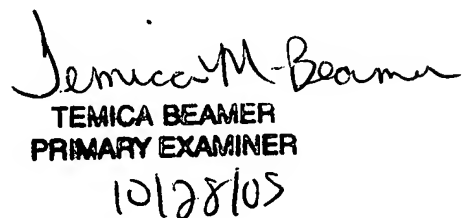 Temica M. Beamer
TEMICA BEAMER
PRIMARY EXAMINER
10/28/05